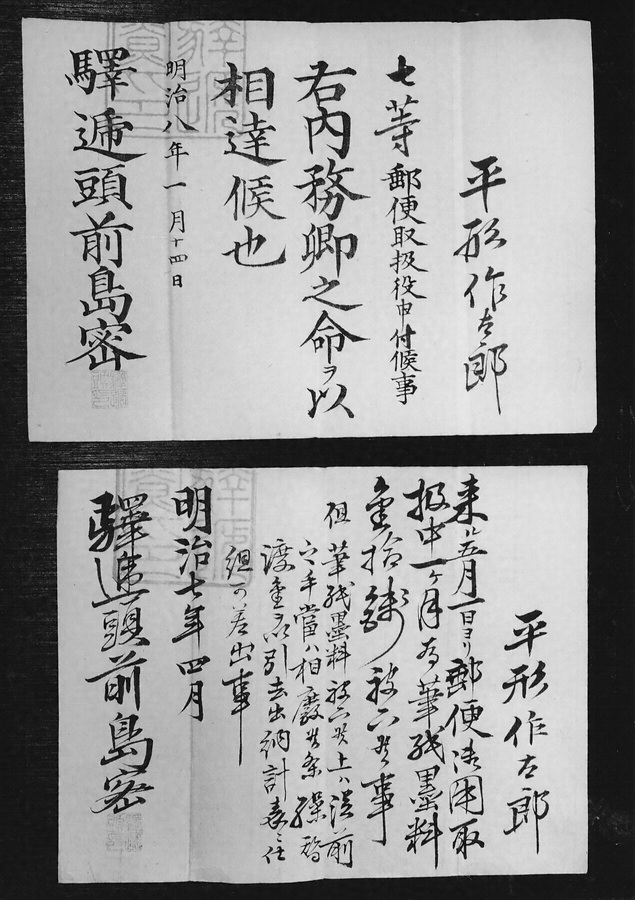 平形作太郎
七等郵便取扱役申付候事
右内務卿之命ヲ以
相達候也
明治八年一月十四日
驛遞頭前島密
平形作太郎
来ル五月一日ヨリ郵便御用取
扱中一ヶ月為筆紙墨料
金拾銭被下候事
但筆紙墨料被下候上ハ従前
之手当ハ相廃候条繰替
渡金引去出納計表ニ任
組可差出事
明治七年四月
驛逓頭前島密